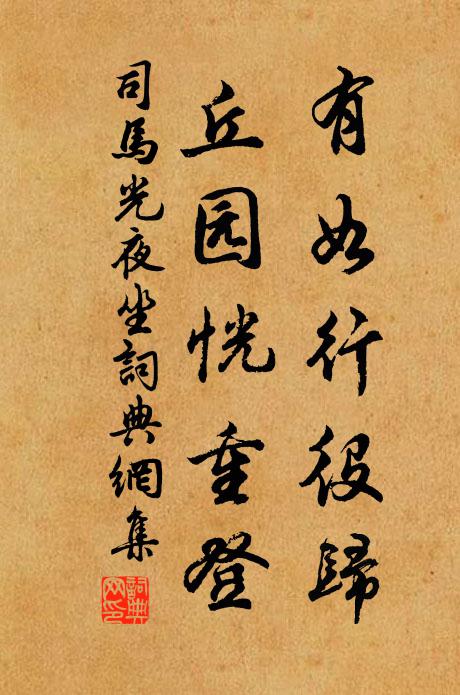 有如行役歸
丘园恍重登
司馬光夜坐詞典網集
詞典网印